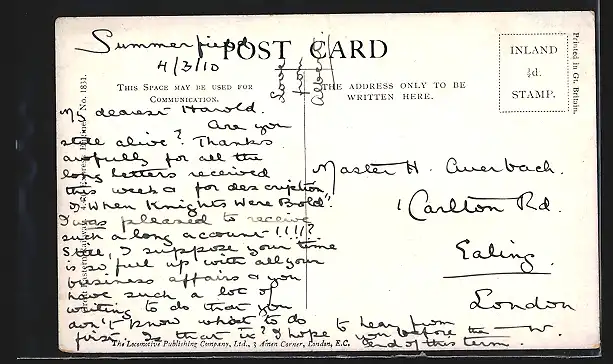 Summerfield
4/3/10
POST CARD
Love
from
Albert
THIS SPACE MAY BE USED FOR
COMMUNICATION.
THE ADDRESS ONLY TO BE
WRITTEN HERE.
INLAND
½d.
STAMP.
Printed in Gt. Britain.
No. 1831.
My dearest Harold.
Are you
still alive? Thanks
awfully for all the
long letters received
this week & for description,
"When Knights Were Bold".
I was pleased to receive
such a long account!!!!?
Still, I suppose your time
is so full up with all your
business affairs & you
have such a lot of
writing to do that you
don't know what to do
first. Is that it? I hope to hear from
you before the
end of this term.
W.
Master H. Auerbach.
1 Carlton Rd.
Ealing.
London
The Locomotive Publishing Company, Ltd., 3 Amen Corner, London, E.C.